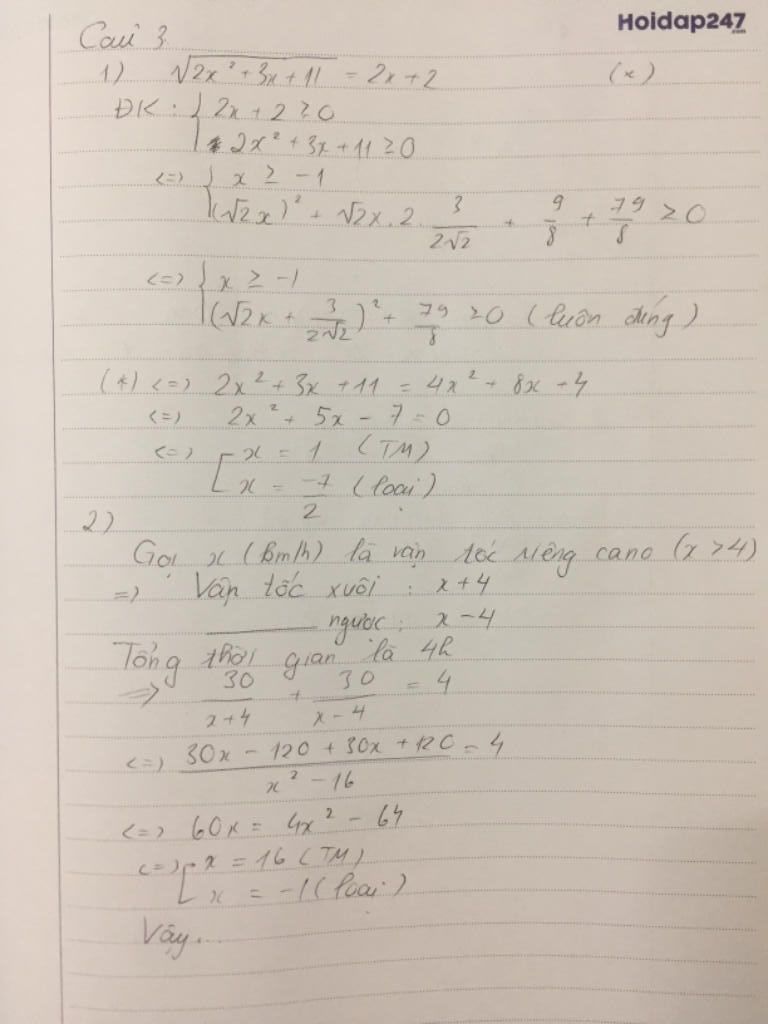 Hoidap247.com
Câu 3.
1) √(2x² + 3x + 11) = 2x + 2 (*)
ĐK: { 2x + 2 ≥ 0
2x² + 3x + 11 ≥ 0
<=> { x ≥ -1
(√2x)² + √2x . 2 . 3/(2√2) + 9/8 + 79/8 ≥ 0
<=> { x ≥ -1
(√2x + 3/(2√2))² + 79/8 ≥ 0 (luôn đúng)
(*) <=> 2x² + 3x + 11 = 4x² + 8x + 4
<=> 2x² + 5x - 7 = 0
<=> [ x = 1 (TM)
x = -7/2 (loại)
2)
Gọi x (km/h) là vận tốc riêng cano (x > 4)
=> Vận tốc xuôi : x + 4
______ ngược : x - 4
Tổng thời gian là 4h
=> 30/(x+4) + 30/(x-4) = 4
<=> (30x - 120 + 30x + 120)/(x² - 16) = 4
<=> 60x = 4x² - 64
<=> [ x = 16 (TM)
x = -1 (loại)
Vậy...